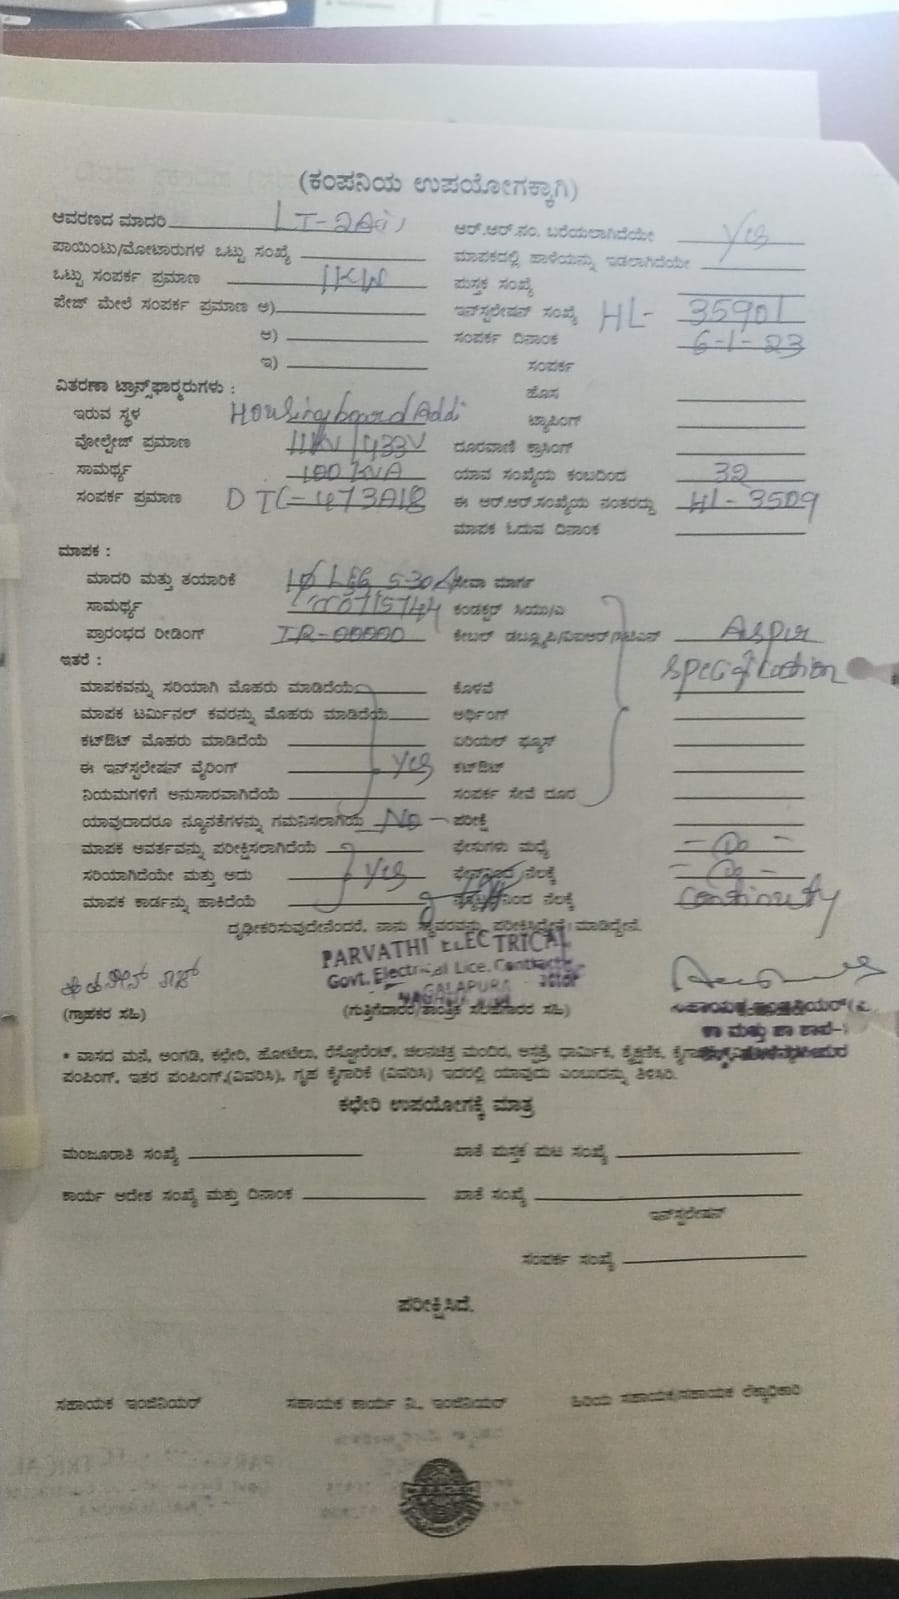 (ಕಂಪನಿಯ ಉಪಯೋಗಕ್ಕಾಗಿ)
ಆವರಣದ ಮಾದರಿ LT-2A(i) ಆರ್.ಆರ್.ನಂ. ಬರೆಯಲಾಗಿದೆಯೇ Yes
ಪಾಯಿಂಟು/ಮೋಟಾರುಗಳ ಒಟ್ಟು ಸಂಖ್ಯೆ ಮಾಪಕದಲ್ಲಿ ಹಾಳೆಯನ್ನು ಇಡಲಾಗಿದೆಯೇ
ಒಟ್ಟು ಸಂಪರ್ಕ ಪ್ರಮಾಣ 1KW ಪುಸ್ತಕ ಸಂಖ್ಯೆ
ಪೇಜ್ ಮೇಲೆ ಸಂಪರ್ಕ ಪ್ರಮಾಣ ಅ) ಇನ್‌ಸ್ಟಲೇಷನ್ ಸಂಖ್ಯೆ HL- 35901
ಆ) ಸಂಪರ್ಕ ದಿನಾಂಕ 6-1-23
ಇ) ಸಂಪರ್ಕ
ವಿತರಣಾ ಟ್ರಾನ್ಸ್‌ಫಾರ್‍ಮರುಗಳು : ಹೊಸ
ಇರುವ ಸ್ಥಳ Housing board ಟ್ಯಾಪಿಂಗ್
ವೋಲ್ಟೇಜ್ ಪ್ರಮಾಣ 11KV/433V ದೂರವಾಣಿ ಕ್ರಾಸಿಂಗ್
ಸಾಮರ್ಥ್ಯ 100 KVA ಯಾವ ಸಂಖ್ಯೆಯ ಕಂಬದಿಂದ 32
ಸಂಪರ್ಕ ಪ್ರಮಾಣ DTC-473A18 ಈ ಆರ್.ಆರ್.ಸಂಖ್ಯೆಯ ನಂತರದ್ದು HL-3509
ಮಾಪಕ ಓದುವ ದಿನಾಂಕ
ಮಾಪಕ :
ಮಾದರಿ ಮತ್ತು ತಯಾರಿಕೆ 1φ L&G 5-30A ಸೇವಾ ಮಾರ್ಗ
ಸಾಮರ್ಥ್ಯ ಕಂಡಕ್ಟರ್ ಸಿಯು/ಎ
ಪ್ರಾರಂಭದ ರೀಡಿಂಗ್ IR-00000 ಕೇಬಲ್ As per
ಇತರೆ : specification
ಮಾಪಕವನ್ನು ಸರಿಯಾಗಿ ಮೊಹರು ಮಾಡಿದೆಯೆ ಕೊಳವೆ
ಮಾಪಕ ಟರ್ಮಿನಲ್ ಕವರನ್ನು ಮೊಹರು ಮಾಡಿದೆಯೆ ಅರ್ಥಿಂಗ್
ಕಟ್‌ಔಟ್ ಮೊಹರು ಮಾಡಿದೆಯೆ ಏರಿಯಲ್ ಫ್ಯೂಸ್
ಈ ಇನ್‌ಸ್ಟಲೇಷನ್ ವೈರಿಂಗ್ Yes ಕಟ್‌ಔಟ್
ನಿಯಮಗಳಿಗೆ ಅನುಸಾರವಾಗಿದೆಯೆ ಸಂಪರ್ಕ ಸೇವೆ ದೂರ
ಯಾವುದಾದರೂ ನ್ಯೂನತೆಗಳನ್ನು ಗಮನಿಸಲಾಗಿದೆಯ No ಪರೀಕ್ಷೆ
ಮಾಪಕ ಅವರ್ತವನ್ನು ಪರೀಕ್ಷಿಸಲಾಗಿದೆಯೆ ಫೇಸುಗಳು ಮಧ್ಯೆ - Do -
ಸರಿಯಾಗಿದೆಯೇ ಮತ್ತು ಅದು Yes ನೆಲಕ್ಕೆ - Do -
ಮಾಪಕ ಕಾರ್ಡನ್ನು ಹಾಕಿದೆಯೆ ನೆಲಕ್ಕೆ Continuity
ದೃಢೀಕರಿಸುವುದೇನೆಂದರೆ, ನಾನು ಪರೀಕ್ಷಿಸಿದ್ದೇನೆ/ಮಾಡಿದ್ದೇನೆ.
PARVATHI ELECTRICAL
Govt. Electrical Lice. Contractor
(ಗ್ರಾಹಕರ ಸಹಿ) (ಗುತ್ತಿಗೆದಾರರ/ತಾಂತ್ರಿಕ ಸಲಹೆಗಾರರ ಸಹಿ)
* ವಾಸದ ಮನೆ, ಅಂಗಡಿ, ಕಛೇರಿ, ಹೋಟೆಲು, ರೆಸ್ಟೋರೆಂಟ್, ಚಲನಚಿತ್ರ ಮಂದಿರ, ಆಸ್ಪತ್ರೆ, ಧಾರ್ಮಿಕ, ಶೈಕ್ಷಣಿಕ,
ಪಂಪಿಂಗ್, ಇತರ ಪಂಪಿಂಗ್,(ವಿವರಿಸಿ), ಗೃಹ ಕೈಗಾರಿಕೆ (ವಿವರಿಸಿ) ಇದರಲ್ಲಿ ಯಾವುದು ಎಂಬುದನ್ನು ತಿಳಿಸಿರಿ.
ಕಛೇರಿ ಉಪಯೋಗಕ್ಕೆ ಮಾತ್ರ
ಮಂಜೂರಾತಿ ಸಂಖ್ಯೆ ಖಾತೆ ಪುಸ್ತಕ ಪುಟ ಸಂಖ್ಯೆ
ಕಾರ್ಯ ಆದೇಶ ಸಂಖ್ಯೆ ಮತ್ತು ದಿನಾಂಕ ಖಾತೆ ಸಂಖ್ಯೆ
ಇನ್‌ಸ್ಟಲೇಷನ್
ಸಂಪರ್ಕ ಸಂಖ್ಯೆ
ಪರೀಕ್ಷಿಸಿದೆ.
ಸಹಾಯಕ ಇಂಜಿನಿಯರ್ ಸಹಾಯಕ ಕಾರ್ಯ ನಿ., ಇಂಜಿನಿಯರ್ ಹಿರಿಯ ಸಹಾಯಕ/ಸಹಾಯಕ ಲೆಕ್ಕಾಧಿಕಾರಿ